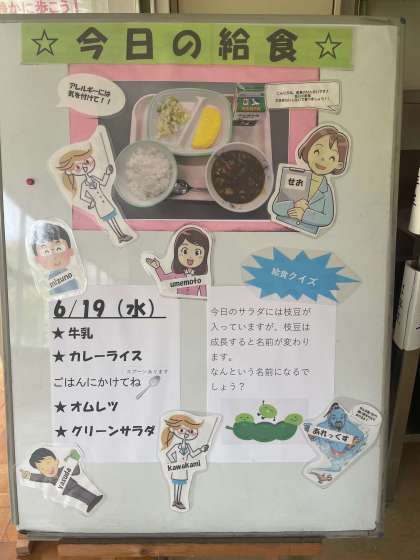 静かに歩こう！
☆今日の給食☆
アレルギーには
気を付けて！！
せお
mizuno
umemoto
給食クイズ
6/19（水）
★牛乳
★カレーライス
スプーンあります
ごはんにかけてね
★オムレツ
★グリーンサラダ
今日のサラダには枝豆が
入っていますが、枝豆は
成長すると名前が変わり
ます。
なんという名前になるで
しょう？
yasuda
kawakami
あれっくす